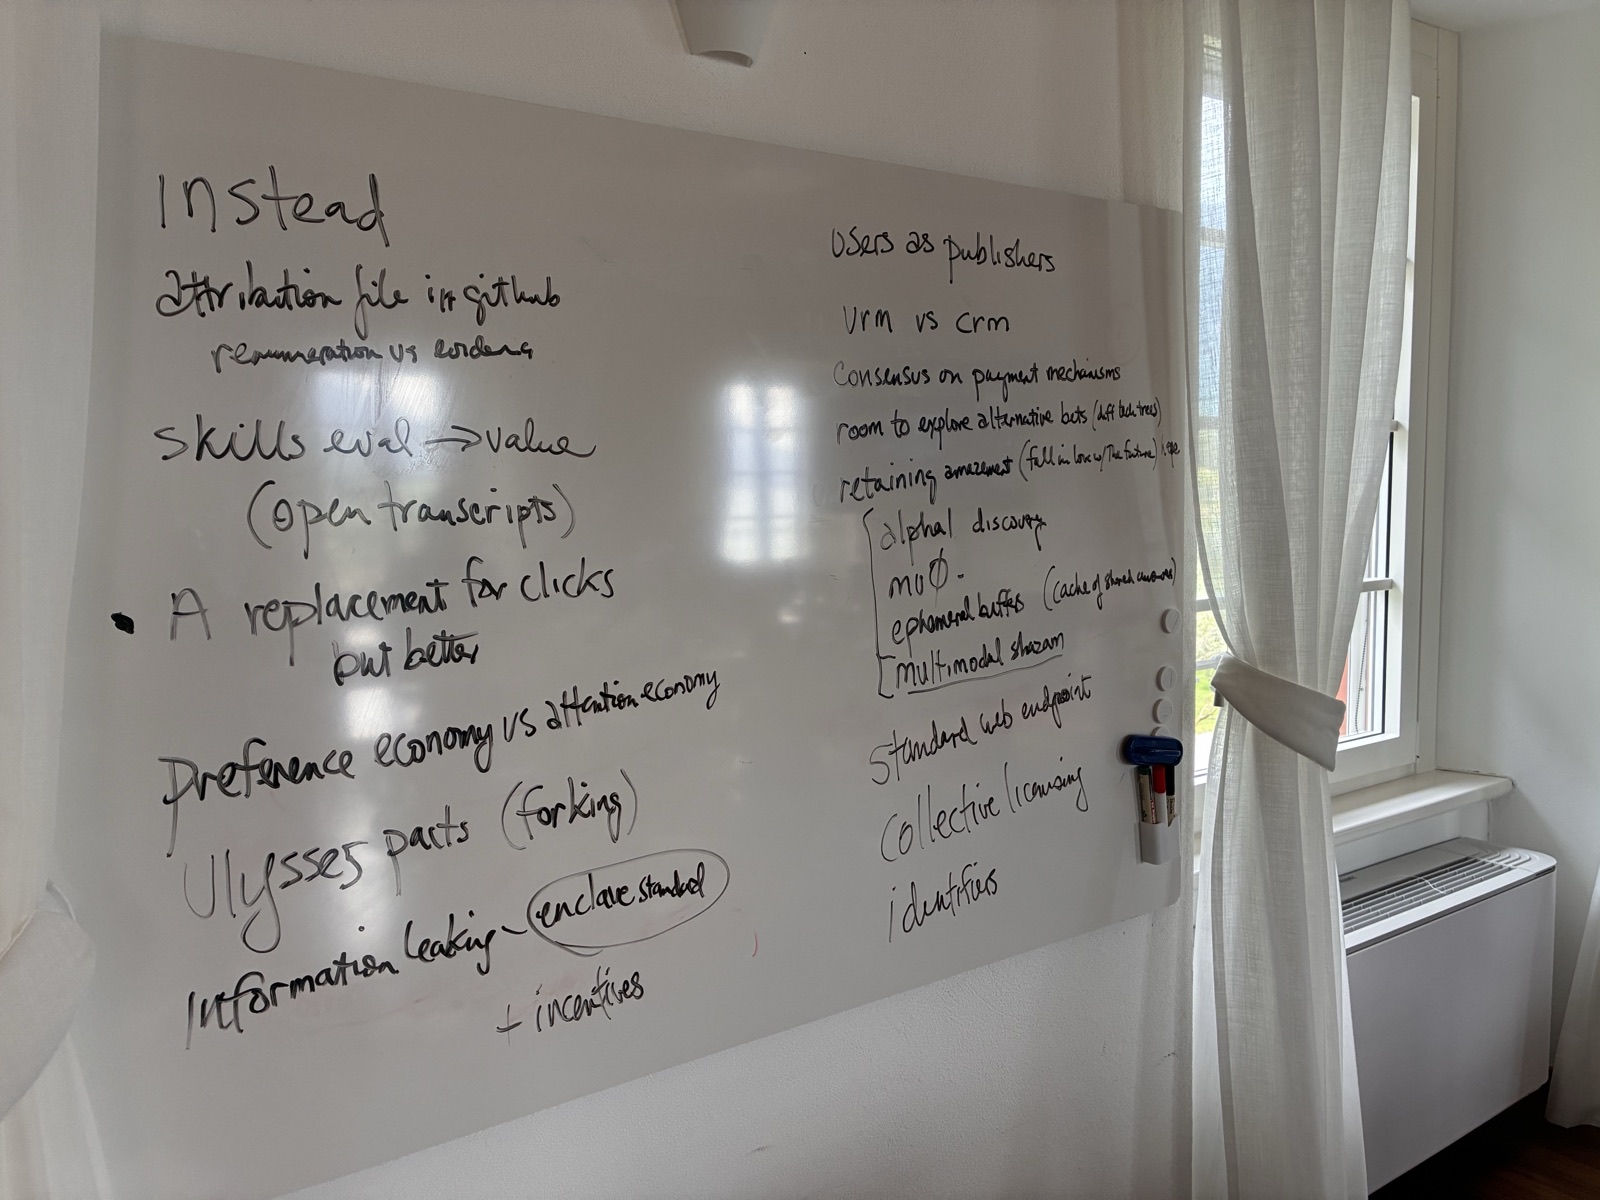 Instead
attribution file in github
remuneration vs evidence
skills eval → value
(open transcripts)
• A replacement for clicks
but better
Preference economy vs attention economy
Ulysses pacts (forking)
Information leaking - enclave standard
+ incentives
users as publishers
vrm vs crm
consensus on payment mechanisms
room to explore alternative bets (diff tech trees)
retaining amazement (fall in love w/ The future)
alphal discovery
mu∅.
ephemeral buffers (cache of shared
multimodal shazam
standard web endpoint
collective licensing
identifiers